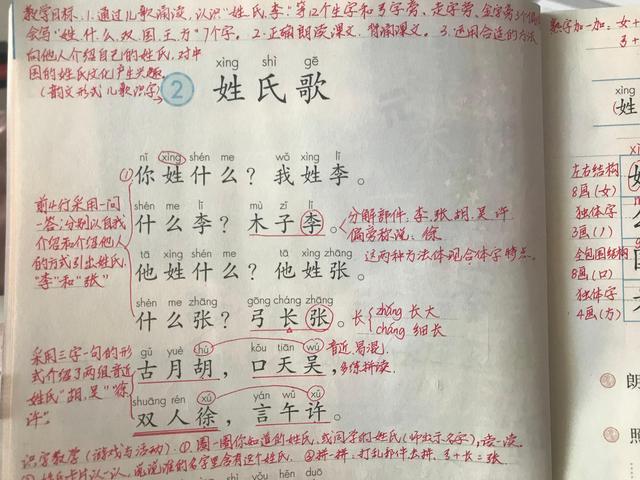 教学目标:1.通过儿歌诵读,认识"姓、氏、李"等12个生字和弓字旁、走字旁、金字旁3个偏
会写"姓、什、么、双、国、王、方"7个字。2.正确朗读课文,背诵课文。3.运用合适的方法
向他人介绍自己的姓氏,对中
国的姓氏文化产生兴趣。
(韵文形式儿歌识字)
xìng shì gē
2 姓氏歌
nǐ xìng shén me wǒ xìng lǐ
①你姓什么?我姓李。
shén me lǐ mù zǐ lǐ
什么李?木子李。
tā xìng shén me tā xìng zhāng
他姓什么?他姓张。
shén me zhāng gōng cháng zhāng
什么张?弓长张。
gǔ yuè hú kǒu tiān wú
古月胡,口天吴,
shuāng rén xú yán wǔ xǔ
双人徐,言午许。
前4行采用一问
一答,分别以自我
介绍和介绍他人
的方式引出姓氏
"李"和"张"
分解部件:李、张、胡、吴、许
偏旁称说:徐
这两种方法体现合体字特点。
长 zhǎng 长大
cháng 细长
采用三字一句的形
式介绍了两组音近
姓氏"胡、吴""徐
许"。
音近易混,
多练拼读。
识字教学(游戏与活动):①圈一圈你知道的姓氏,或同学的姓氏(师出示名字),读一读。
②拼一拼:打乱部件去拼,弓+长=张
③姓氏卡片认一认,说说谁的名字里含有这个姓氏。
shí yǒu hěn duō
数字加一加:女+
弓+
xìng
姓
左右结构
8画(女)
独体字
3画(丿)
全包围结构
8画(口)
独体字
4画(方)
朗